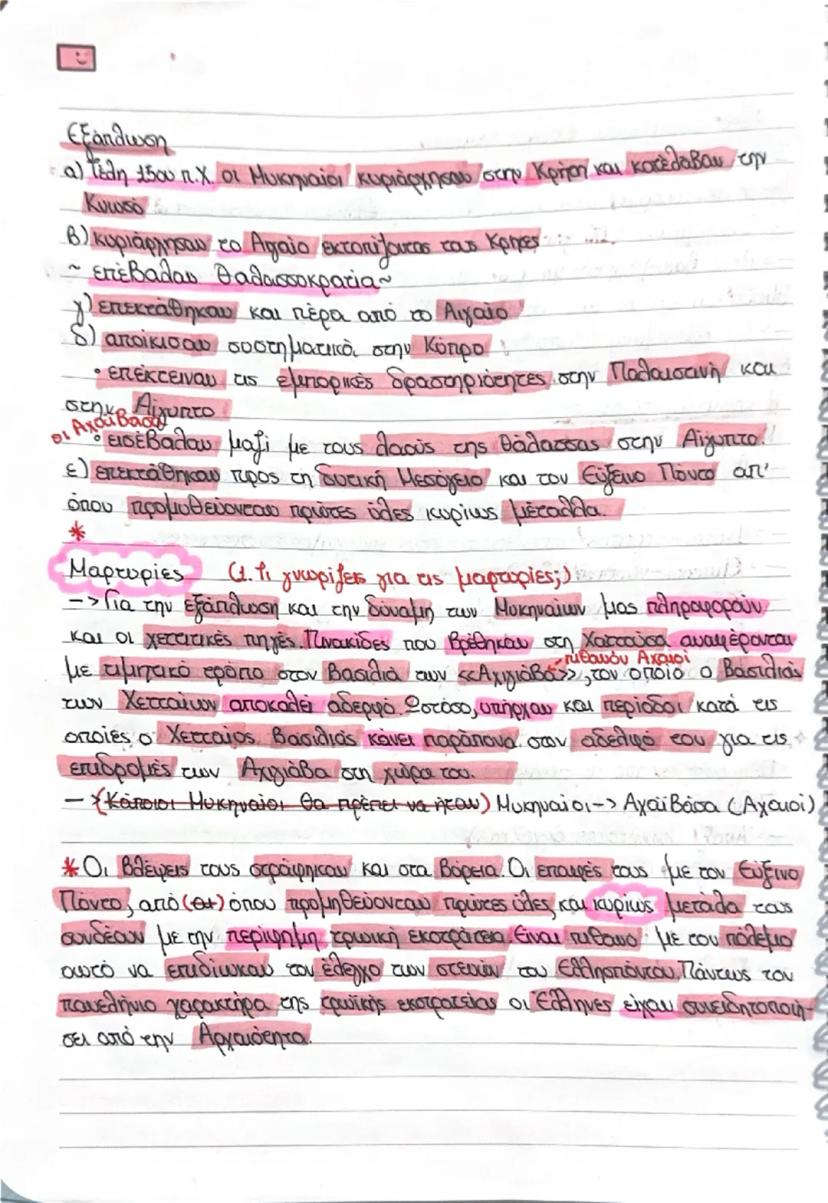 Εξάπλωση
α) Τέλη 15ου π.Χ. οι Μυκηναίοι κυριάρχησαν στην Κρήτη και κατέλαβαν την
Κνωσό
β) κυριάρχησαν το Αιγαίο εκτοπίζοντας τους Κρήτες
~ επέβαλαν θαλασσοκρατία ~
γ) επεκτάθηκαν και πέρα από το Αιγαίο
δ) αποίκισαν συστηματικά στην Κύπρο
• επέκτειναν τις εμπορικές δραστηριότητες στην Παλαιστινή και
στην Αίγυπτο
οι Αχαϊβάσα
• εισέβαλαν μαζί με τους λαούς της θάλασσας στην Αίγυπτο.
ε) επεκτάθηκαν προς τη δυτική Μεσόγειο και τον Εύξεινο Πόντο απ'
όπου προμυθεύονταν πρώτες ύλες κυρίως μέταλλα.
*
Μαρτυρίες (1. Τι γνωρίζεις για τις μαρτυρίες;)
-> Για την εξάπλωση και την δύναμη των Μυκηναίων μας πληροφορούν
και οι χεττιτικές πηγές. Πινακίδες που βρέθηκαν στη Χαττούσα αναφέρονται
πιθανόν Αχαιοί
με τιμητικό τρόπο στον Βασιλιά των <<Αχιγιάβα>>, τον οποίο ο Βασιλιάς
των Χετταίων αποκαλεί αδερφό. Ωστόσο, υπήρχαν και περίοδοι κατά τις
οποίες ο Χετταίος Βασιλιάς κάνει παράπονα στον αδελφό του για τις
επιδρομές των Αχιγιάβα στη χώρα του.
-> (Κάποιοι Μυκηναίοι θα πρέπει να ήταν) Μυκηναίοι -> Αχαϊβάσα (Αχαιοί)
* Οι βλέψεις τους στράφηκαν και στα Βόρεια. Οι επαφές τους με τον Εύξινο
Πόντο, από όπου προμηθεύονταν πρώτες ύλες και κυρίως μέταλα τους
συνδέαν με την περίφημη τρωική εκστρατεία. Είναι πιθανό με τον πόλεμο
αυτό να επιδίωκαν τον έλεγχο των στενών του Ελλησπόντου. Πάντως τον
πανελήνιο χαρακτήρα της τρωϊκής εκστρατείας οι Έλληνες είχαν συνειδητοποιή-
σει από την Αρχαιότητα.